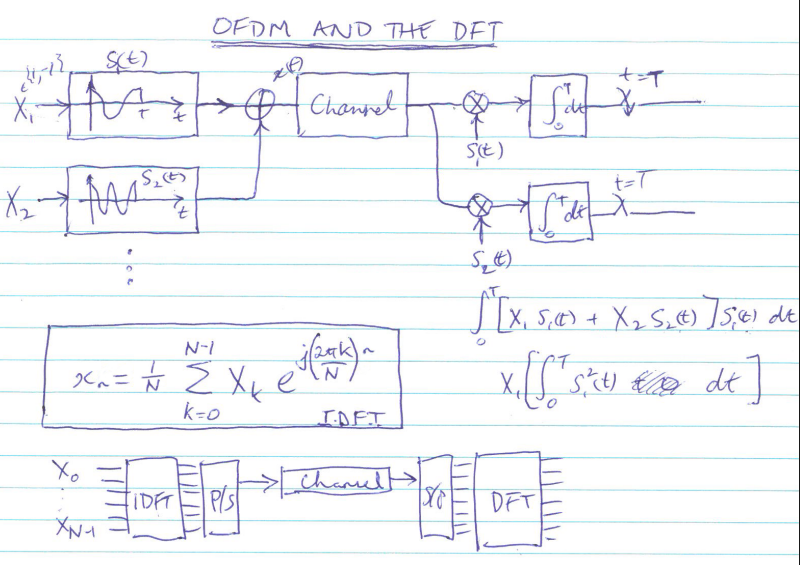 OFDM AND THE DFT
{1,-1}
S₁(t)
X₁
T
t
x(t)
Channel
S₁(t)
∫₀ᵀ dt
t=T
X₂
S₂(t)
t
S₂(t)
∫₀ᵀ dt
t=T
∫₀ᵀ [X₁ S₁(t) + X₂ S₂(t)] S₁(t) dt
X₁ [∫₀ᵀ S₁²(t) dt]
xₙ = 1/N ∑_{k=0}^{N-1} Xₖ e^{j(2πk/N)n}
I.D.F.T
X₀
X_{N-1}
IDFT
P/S
Channel
S/P
DFT